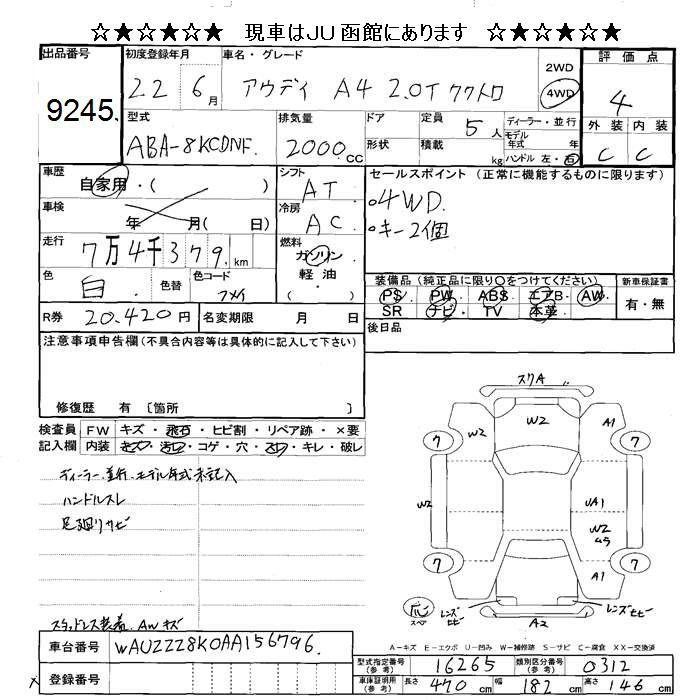 ☆★☆★☆★ 現車はJU函館にあります ☆★☆★☆★
出品番号 9245.
初度登録年月 22 6月
車名・グレード アウディ A4 2.0T クワトロ
2WD 4WD
評価点 4
外装 内装
C C
型式 ABA-8KCDNF.
排気量 2000cc
ドア 形状
定員 5人 積載 kg
ディーラー・並行
モデル年式 年
ハンドル 左・右
車歴 自家用・( )
車検 年 月( 日)
走行 7万4千379.km
色 白. 色替 色コード フメイ
シフト AT
冷房 AC
燃料 ガソリン 軽油 ( )
セールスポイント(正常に機能するものに限ります)
○4WD.
○キー2個
装備品(純正品に限り○をつけてください)
PS・ PW・ ABS・ エアB・ AW・
SR ナビ・ TV 本革・
新車保証書
有・無
R券 20.420円 名変期限 月 日
後日品
注意事項申告欄(不具合内容等は具体的に記入して下さい)
修復歴 有 〔箇所 〕
検査員 FW キズ・飛石・ヒビ割・リペア跡・×要
記入欄 内装 キズ・汚レ・コゲ・穴・スレ・キレ・破レ
ディーラー、並行、モデル年式未記入
ハンドルスレ
足廻りサビ
スタッドレス装着. AWキズ
スリA
W2
W2 A1
7 7
W2 UA1
W2
ムラ
7 7
A1
スペア レンズヒビ レンズヒビ
A2
A-キズ E-エクボ U-凹み W-補修跡 S-サビ C-腐食 XX-交換済
車台番号 WAUZZZ8K0AA156796.
登録番号
型式指定番号(参考) 16265 類別区分番号(参考) 0312
車庫証明用(参考) 長さ 470cm 幅 182cm 高さ 146cm